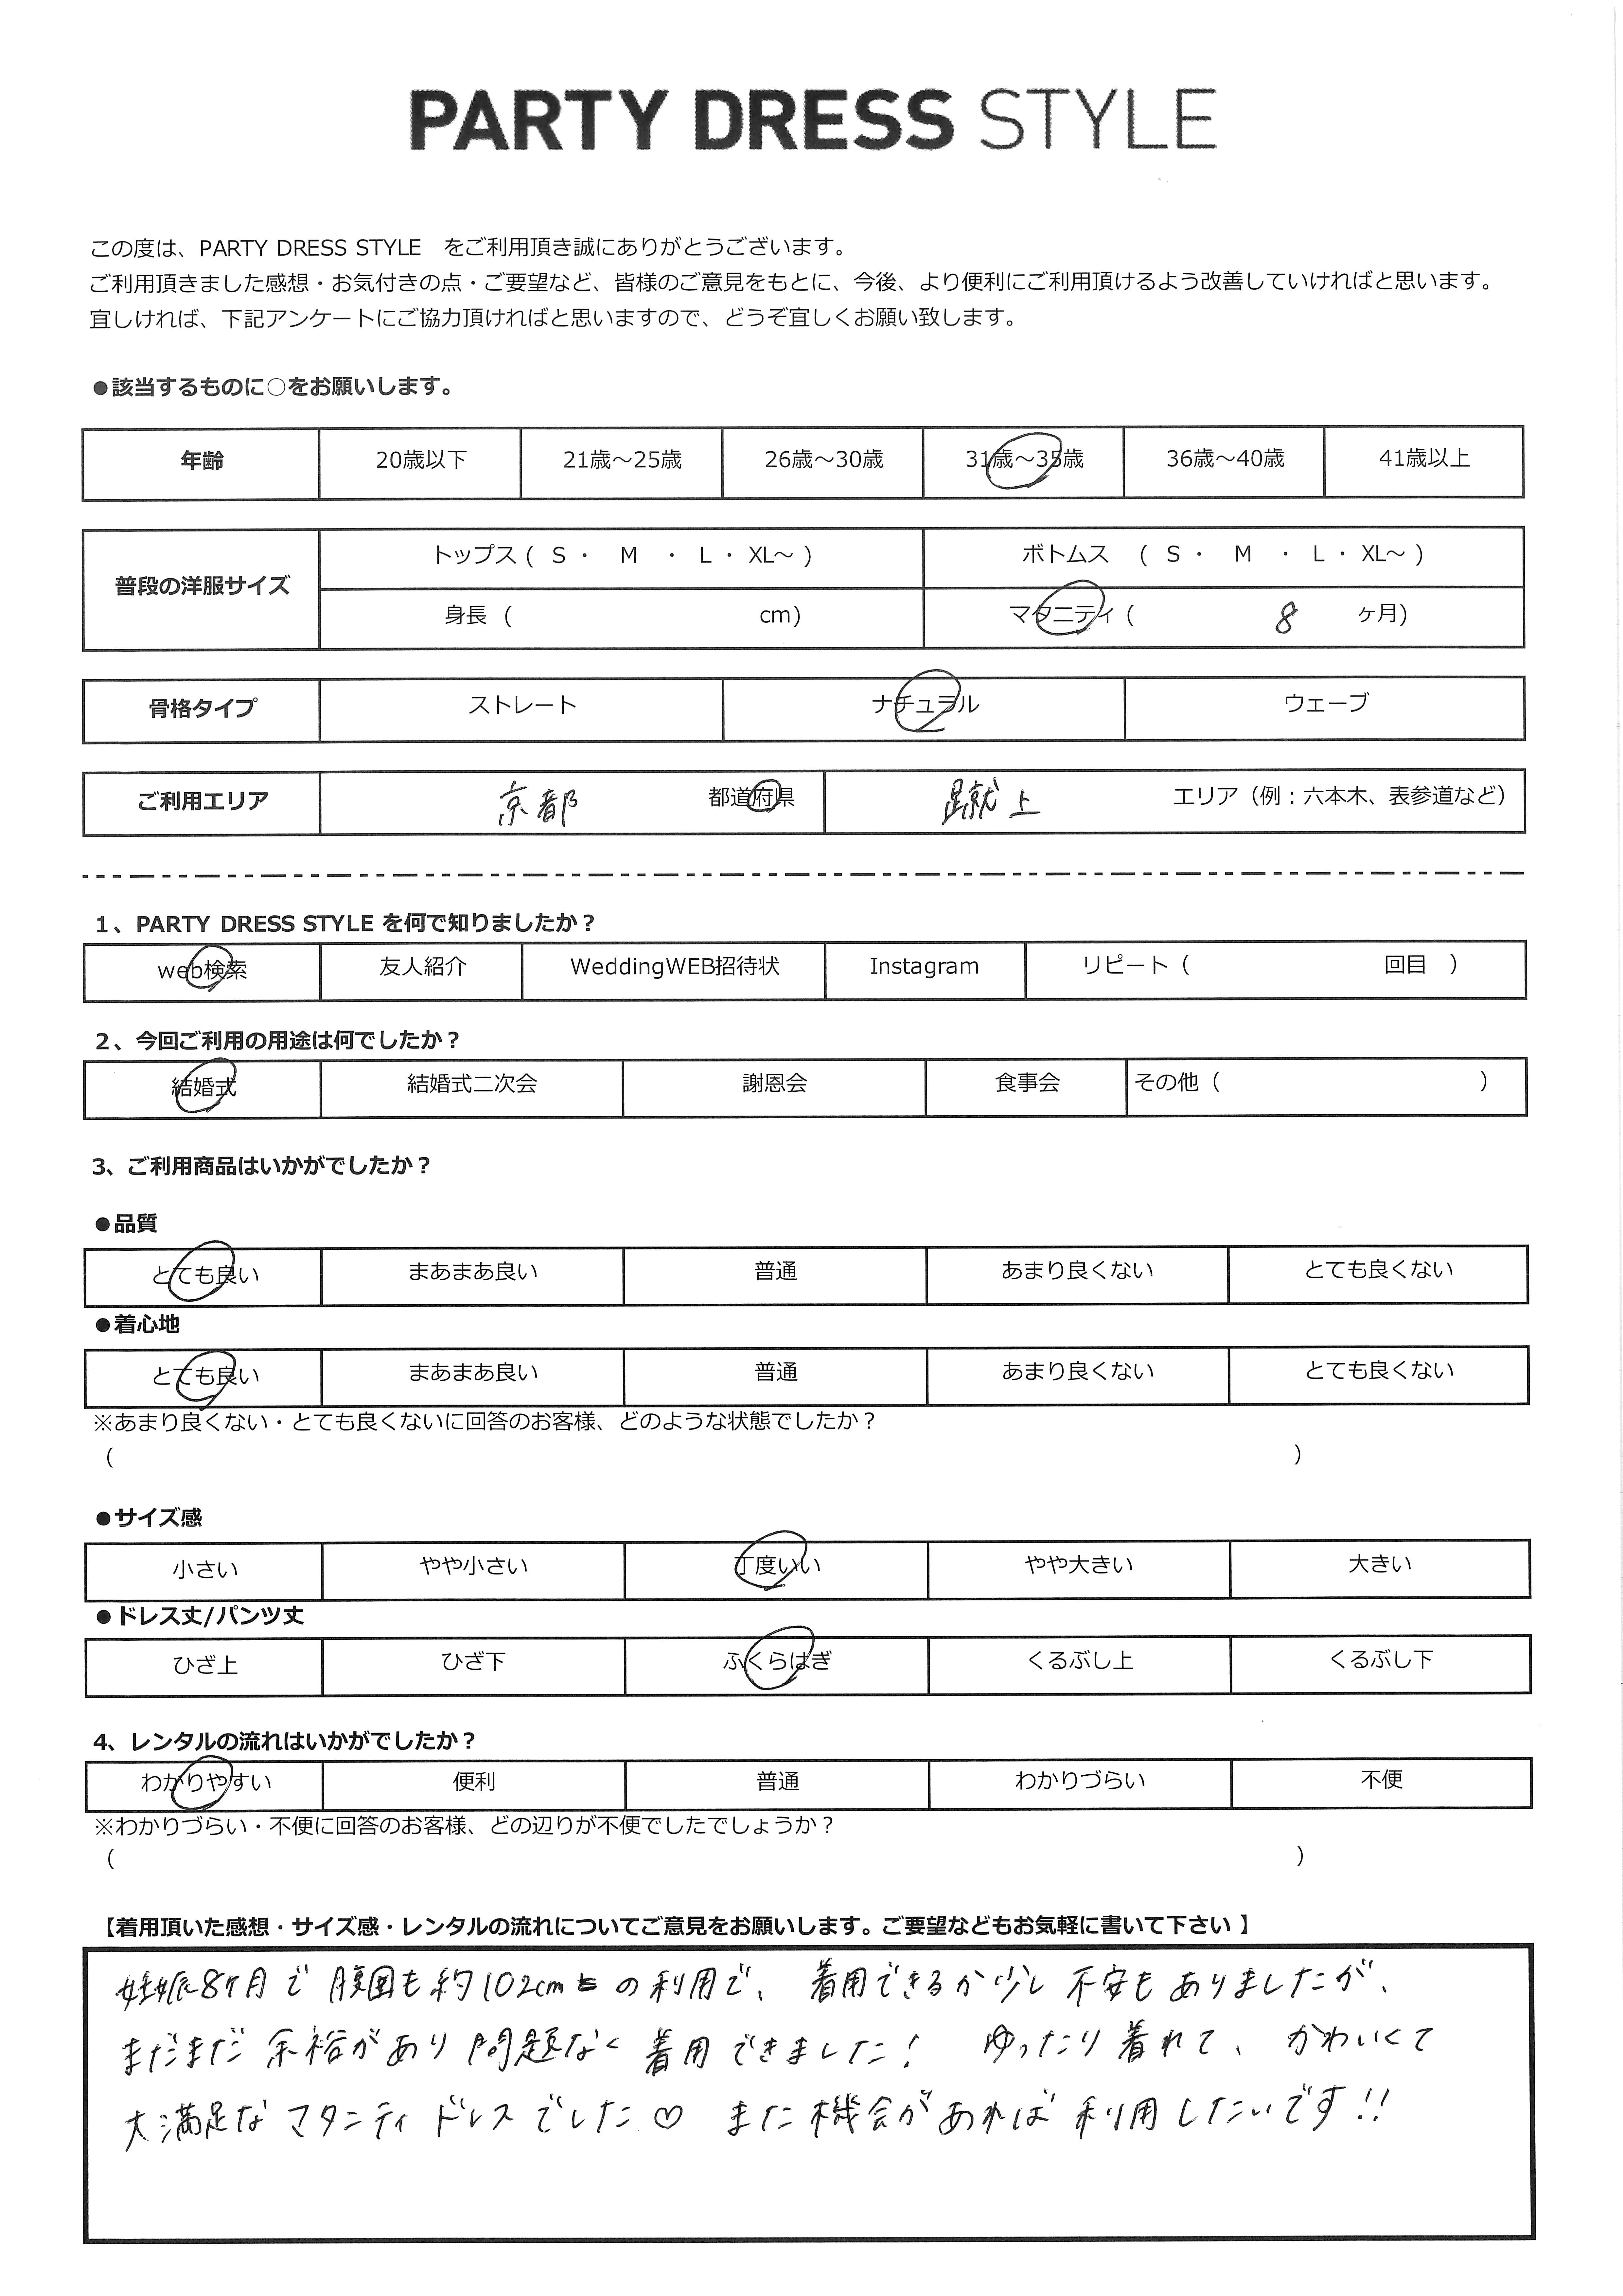 PARTY DRESS STYLE
この度は、PARTY DRESS STYLE　をご利用頂き誠にありがとうございます。
ご利用頂きました感想・お気付きの点・ご要望など、皆様のご意見をもとに、今後、より便利にご利用頂けるよう改善していければと思います。
宜しければ、下記アンケートにご協力頂ければと思いますので、どうぞ宜しくお願い致します。
●該当するものに○をお願いします。
年齢 20歳以下 21歳～25歳 26歳～30歳 31歳～35歳 36歳～40歳 41歳以上
普段の洋服サイズ トップス ( S ・ M ・ L ・ XL～ ) ボトムス ( S ・ M ・ L ・ XL～ )
身長 ( cm) マタニティ ( 8 ヶ月)
骨格タイプ ストレート ナチュラル ウェーブ
ご利用エリア 京都 都道府県 蹴上 エリア（例：六本木、表参道など）
1、PARTY DRESS STYLE を何で知りましたか？
web検索 友人紹介 WeddingWEB招待状 Instagram リピート（ 回目 ）
2、今回ご利用の用途は何でしたか？
結婚式 結婚式二次会 謝恩会 食事会 その他（ ）
3、ご利用商品はいかがでしたか？
●品質
とても良い まあまあ良い 普通 あまり良くない とても良くない
●着心地
とても良い まあまあ良い 普通 あまり良くない とても良くない
※あまり良くない・とても良くないに回答のお客様、どのような状態でしたか？
（ ）
●サイズ感
小さい やや小さい 丁度いい やや大きい 大きい
●ドレス丈/パンツ丈
ひざ上 ひざ下 ふくらはぎ くるぶし上 くるぶし下
4、レンタルの流れはいかがでしたか？
わかりやすい 便利 普通 わかりづらい 不便
※わかりづらい・不便に回答のお客様、どの辺りが不便でしたでしょうか？
（ ）
【着用頂いた感想・サイズ感・レンタルの流れについてご意見をお願いします。ご要望などもお気軽に書いて下さい 】
妊娠8ヶ月で腹囲も約102cmの利用で、着用できるか少し不安もありましたが、
まだまだ余裕があり問題なく着用できました！ ゆったり着れて、かわいくて
大満足なマタニティドレスでした♡ また機会があれば利用したいです!!